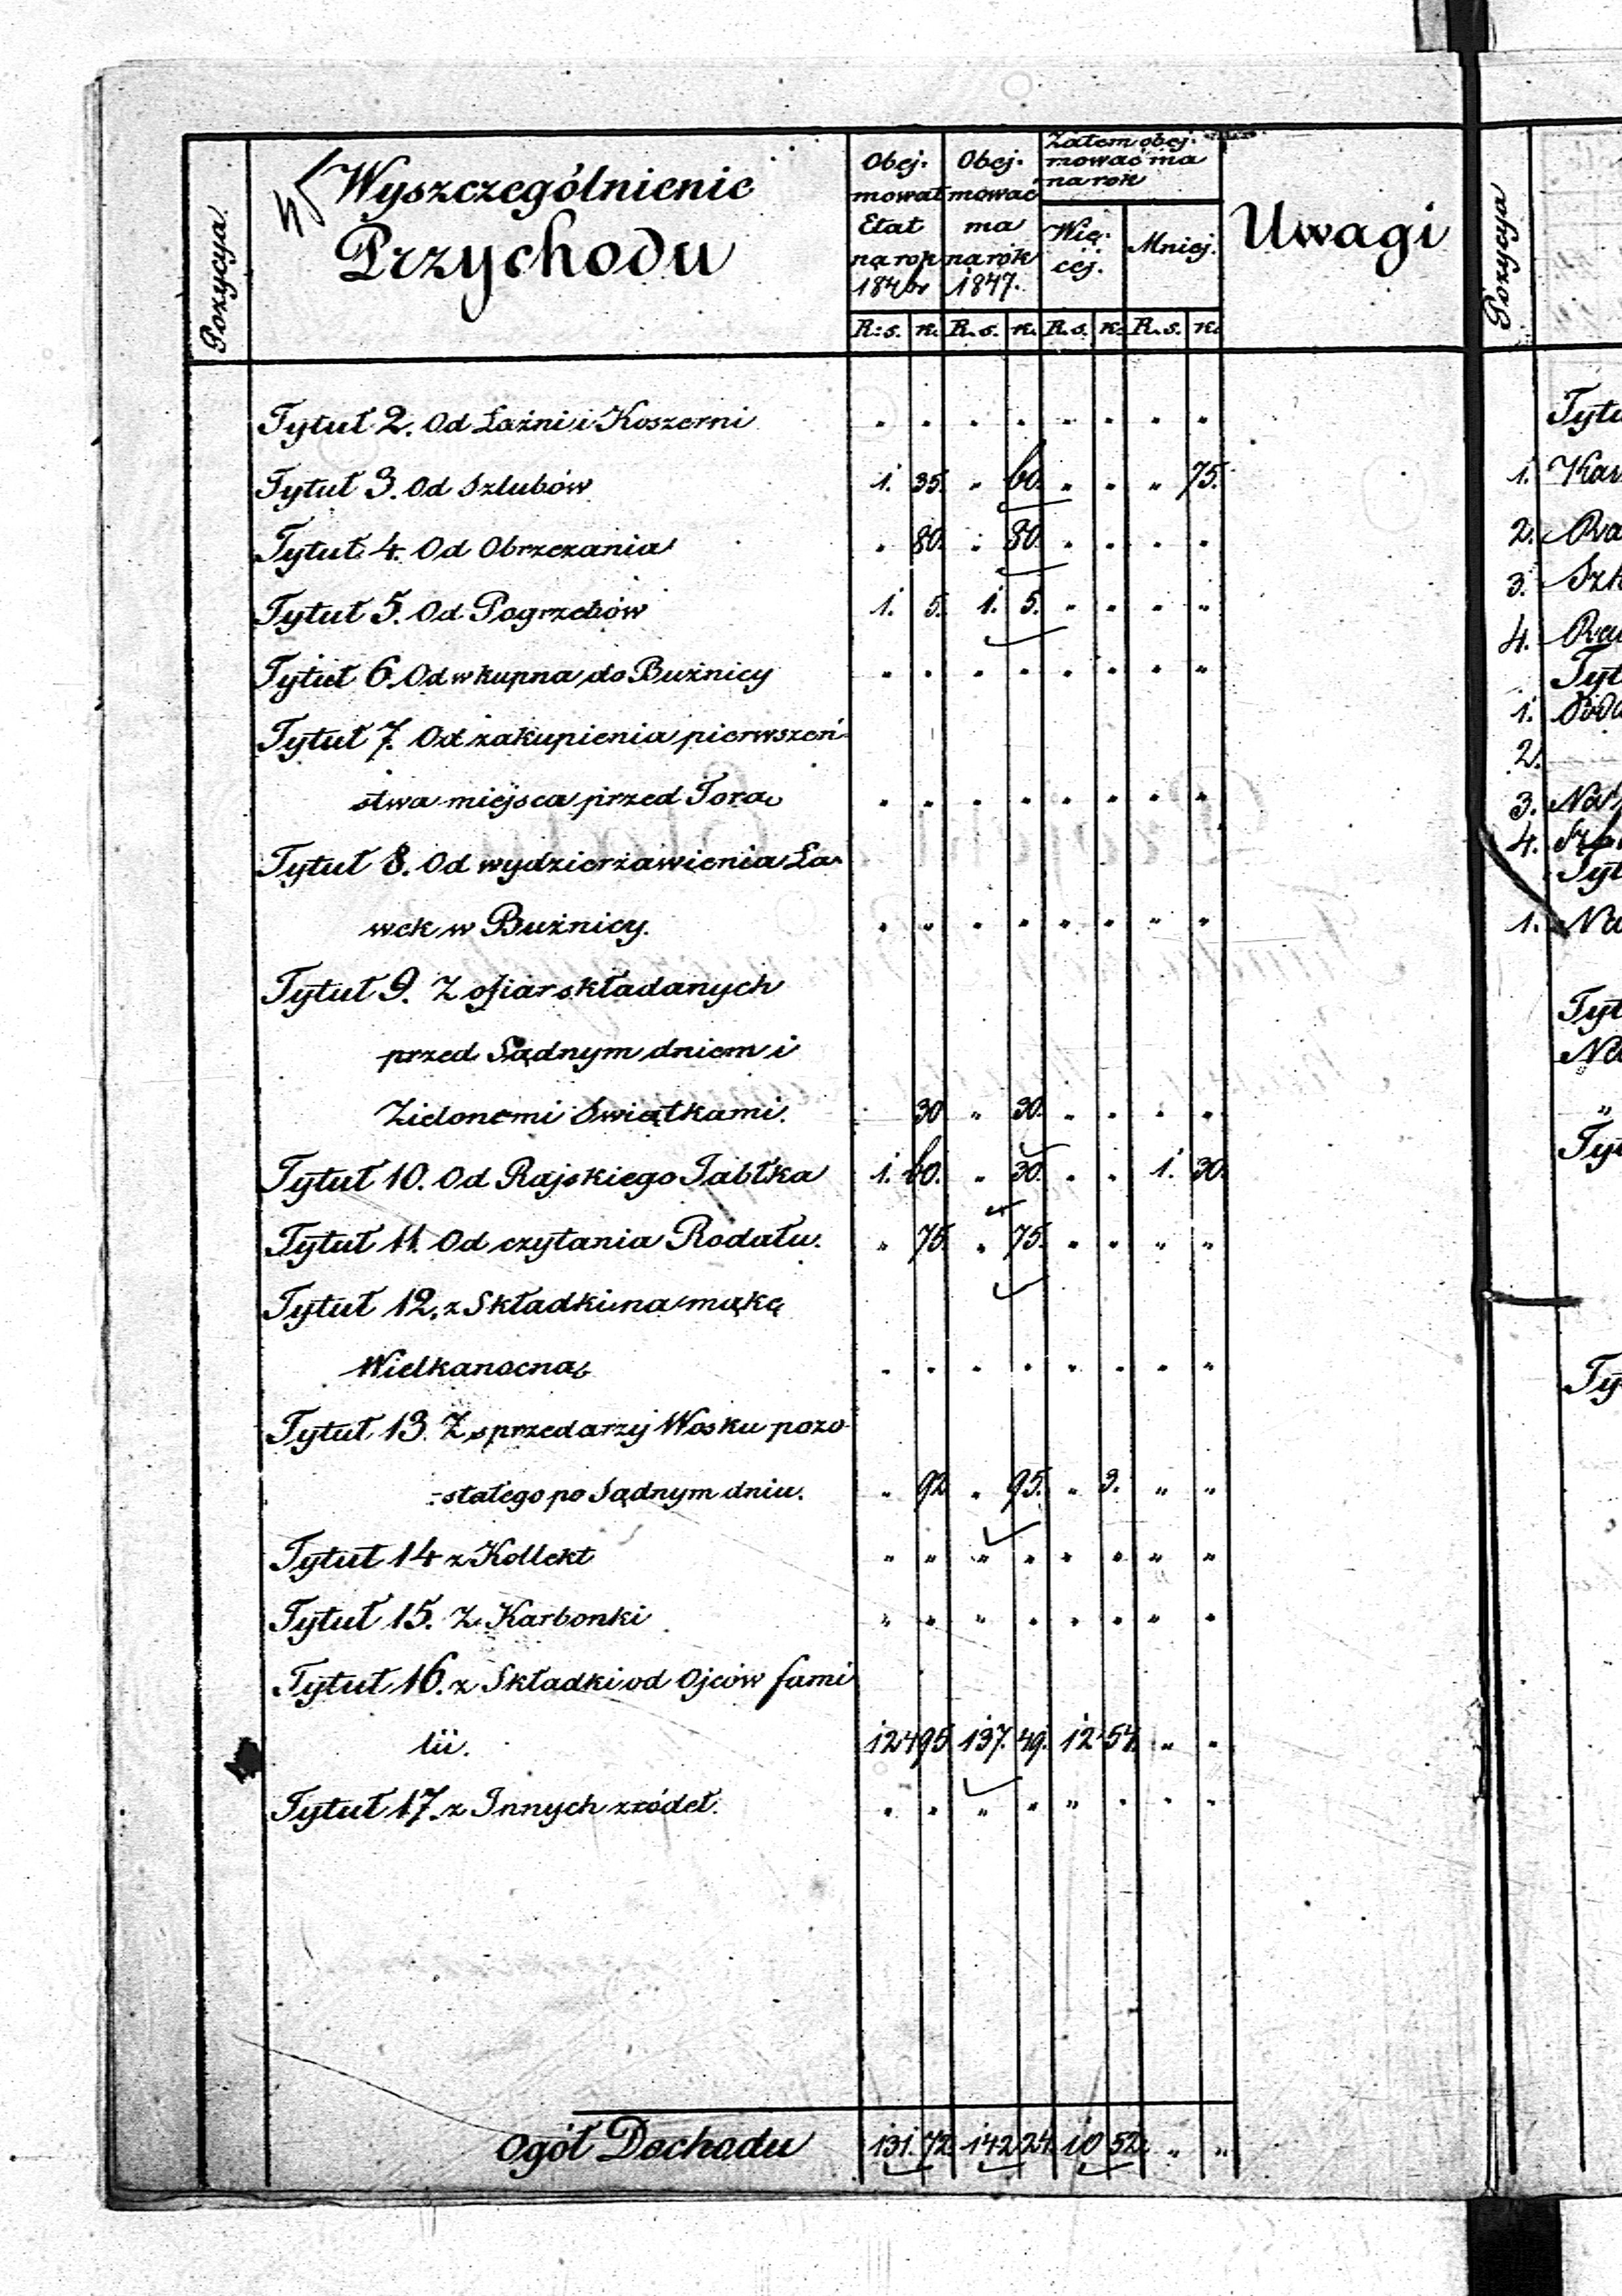 Pozycya
Wyszczególnienie
Przychodu
Obej-
mował
Etat
na rok
Obej-
mować
ma
na rok
1847.
Zatem obej-
mować ma
na rok
Wię-
cej.
Mniej.
Uwagi
R: s. k. R. s. k. R. s. k. R. s. k.
Tytuł 2. Od Łaźni i Koszerni " " " " " " " "
Tytuł 3. Od Szlubów 1. 35. " 60. " " " 75.
Tytuł 4. Od Obrzezania " 80. " 80. " " " "
Tytuł 5. Od Pogrzebów 1. 5. 1. 5. " " " "
Tytuł 6. Od wkupna do Bużnicy " " " " " " " "
Tytuł 7. Od zakupienia pierwszeń-
stwa miejsca przed Torą " " " " " " " "
Tytuł 8. Od wydzierżawienia Ła-
wek w Bużnicy. " " " " " " " "
Tytuł 9. Z ofiar składanych
przed Sądnym dniem i
Zielonemi Swiątkami. 30 " 30. " " " "
Tytuł 10. Od Rajskiego Jabłka 1. 60. " 30. " " 1. 30.
Tytuł 11. Od czytania Rodału. " 75. " 75. " " " "
Tytuł 12. z Składki na mąkę
Wielkanocną " " " " " " " "
Tytuł 13. Z sprzedarzy Wosku pozo-
-stałego po Sądnym dniu. " 92 " 95. " 3. " "
Tytuł 14 z Kollekt " " " " " " " "
Tytuł 15. Z Karbonki " " " " " " " "
Tytuł 16. z Składki od Ojców fami
lii. 124 95 137. 49. 12 54. " "
Tytuł 17. z Innych źródeł. " " " " " " " "
Ogół Dochodu 131. 72 142 24. 10 52. " "
Pozycya
1.
2.
3.
4.
1.
2.
3.
4.
1.